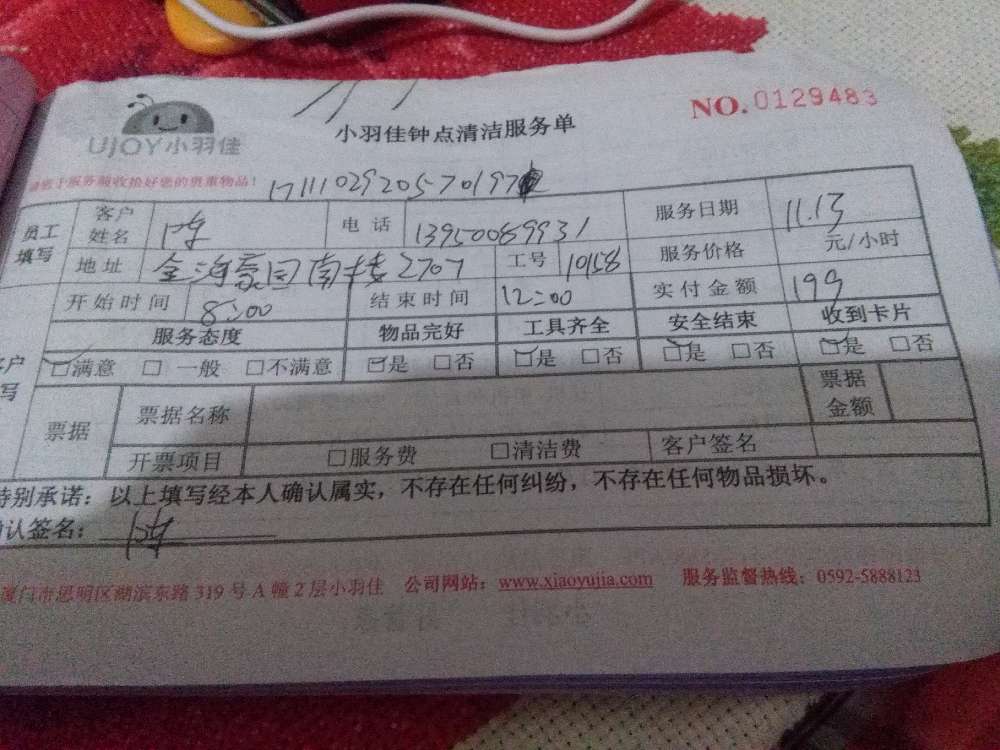 UJOY小羽佳
小羽佳钟点清洁服务单
NO.0129483
请您于服务前收拾好您的贵重物品!
员工填写
客户姓名 陈 电话 13950089931 服务日期 11.13
地址 金海豪园南楼2707 工号 10158 服务价格 元/小时
开始时间 8:00 结束时间 12:00 实付金额 199
服务态度 物品完好 工具齐全 安全结束 收到卡片
满意 一般 不满意 是 否 是 否 是 否 是 否
票据 票据名称 票据金额
开票项目 服务费 清洁费 客户签名
特别承诺：以上填写经本人确认属实，不存在任何纠纷，不存在任何物品损坏。
确认签名：陈
厦门市思明区湖滨东路319号A幢2层小羽佳 公司网站：www.xiaoyujia.com 服务监督热线：0592-5888123